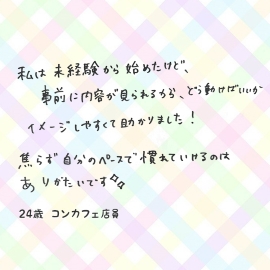 私は 未経験から 始めたけど、
事前に内容が見られるから、どう動けばいいか
イメージしやすくて助かりました！
焦らず自分のペースで慣れていけるのは
ありがたいです
24歳 コンカフェ店員